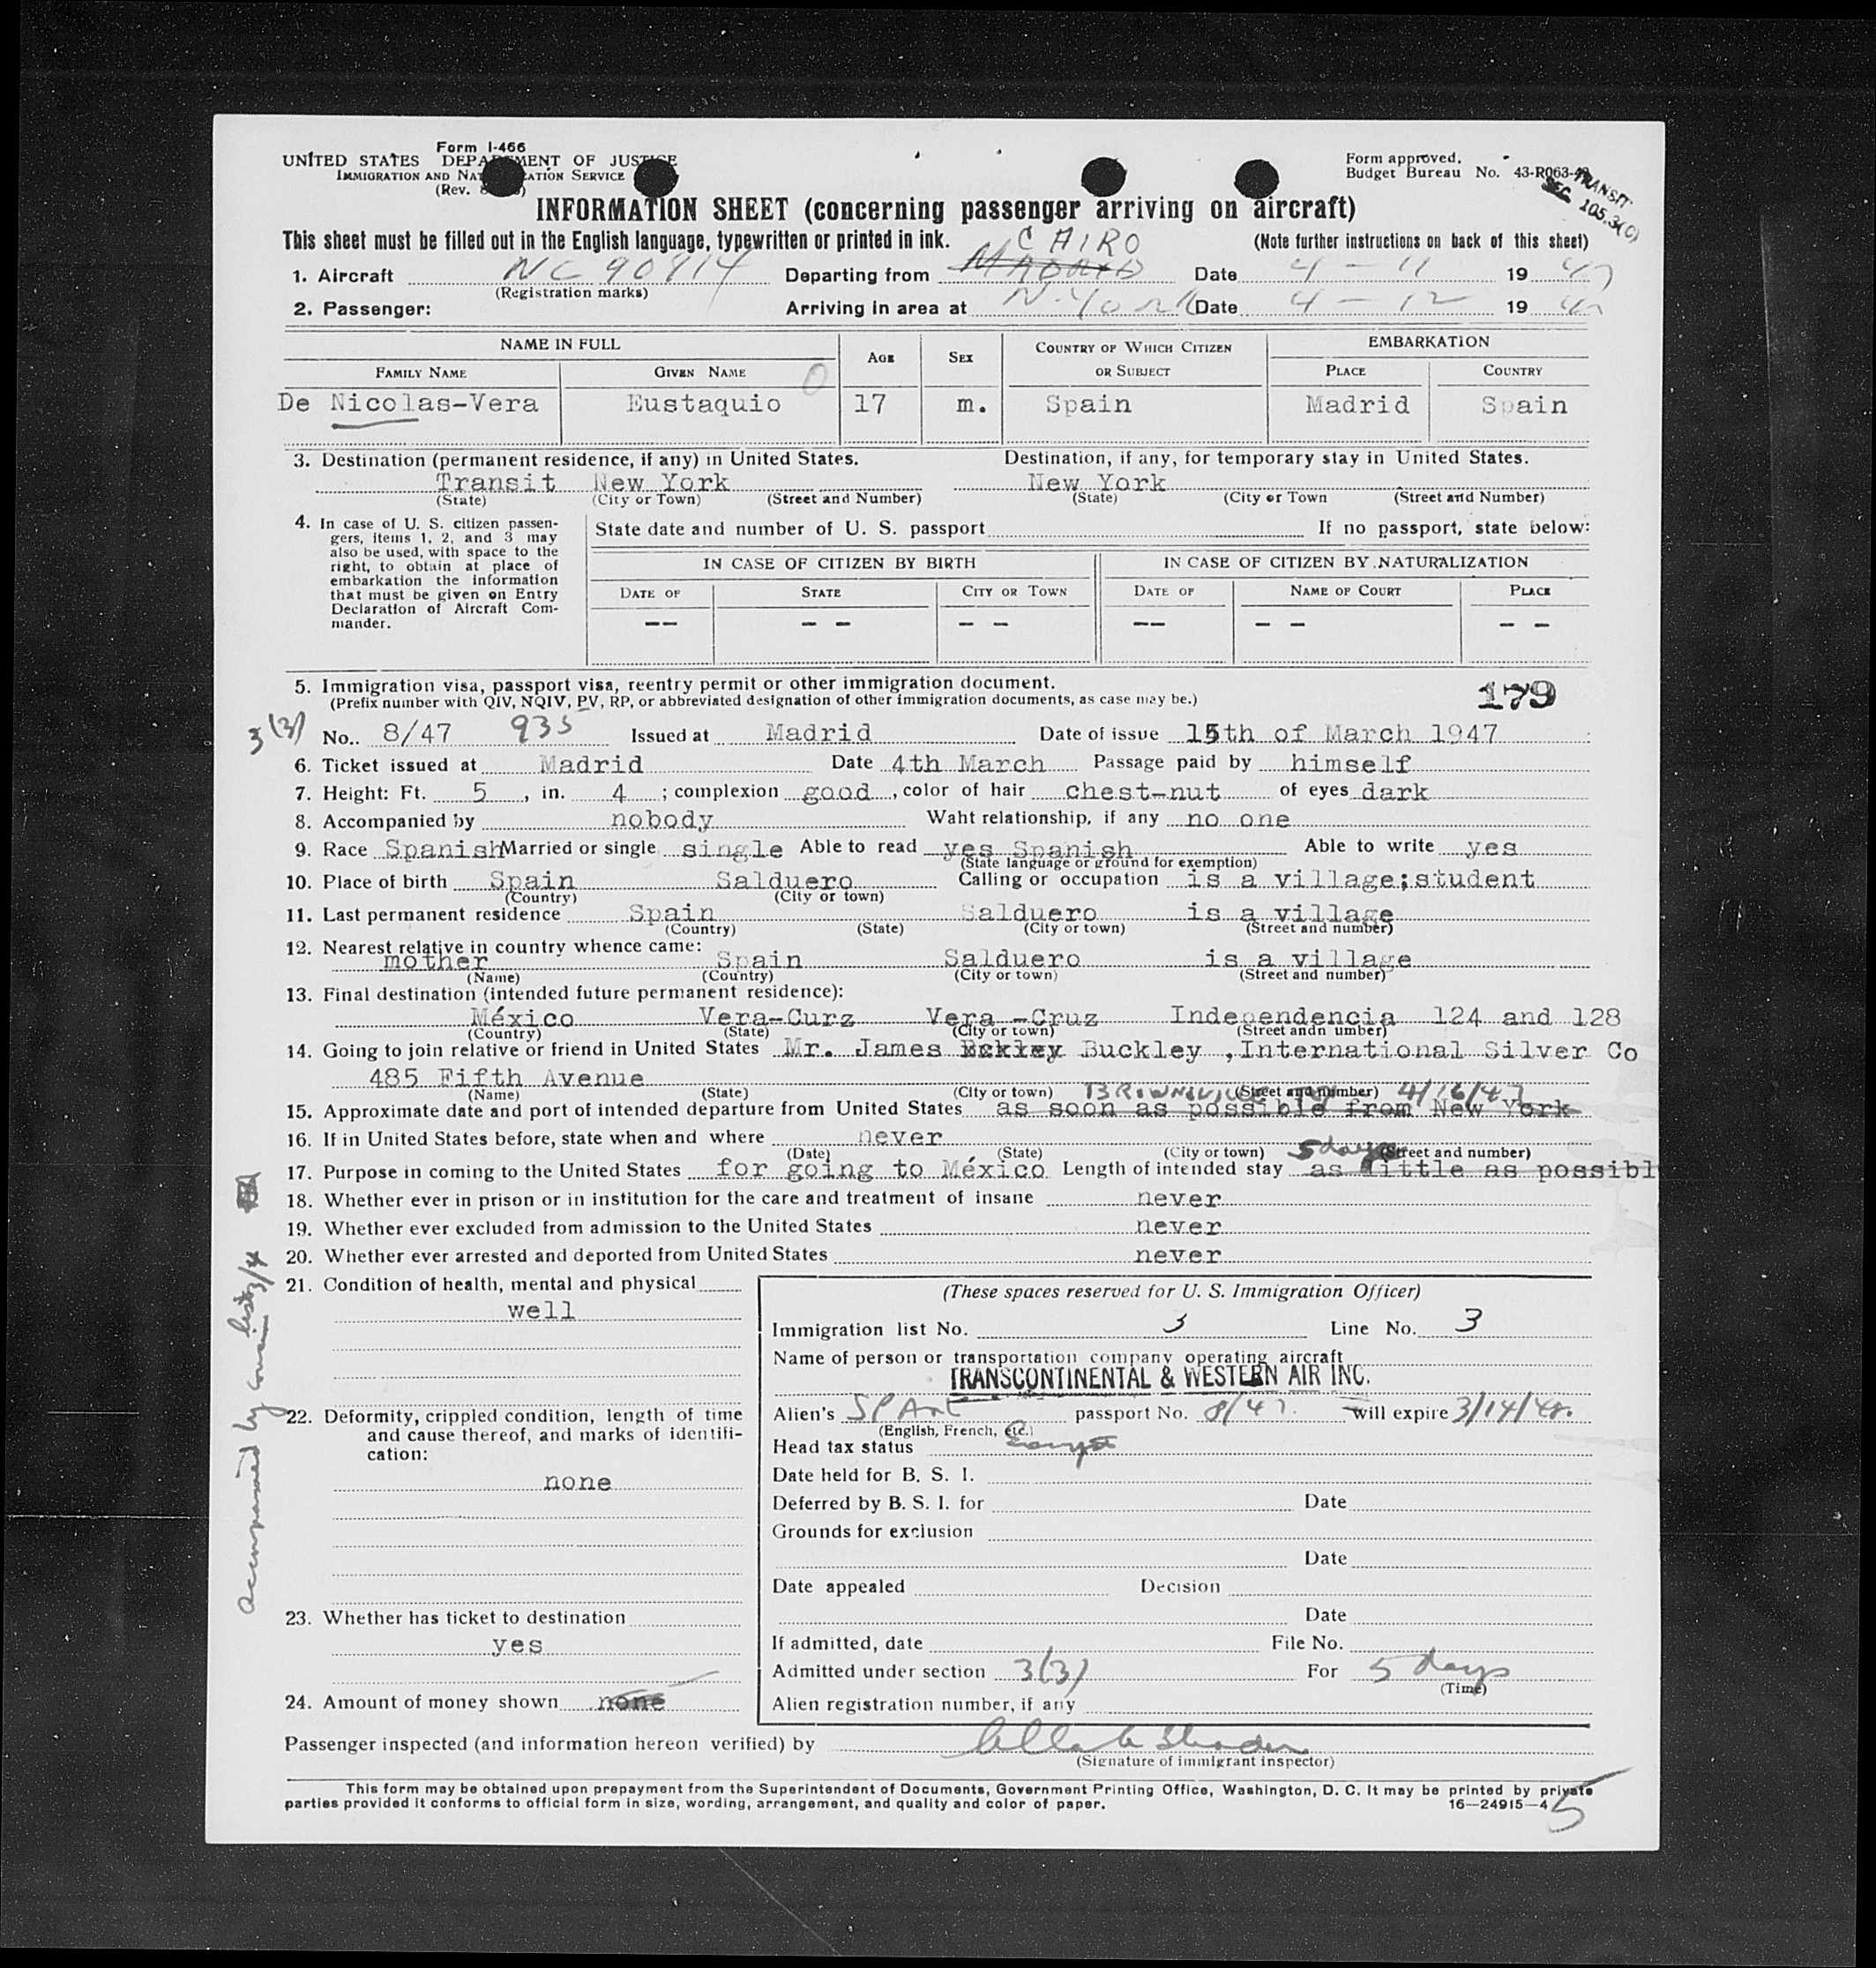 Form I-466
UNITED STATES DEPARTMENT OF JUSTICE
IMMIGRATION AND NAT ATION SERVICE
(Rev.
Form approved.
Budget Bureau No. 43-R063-
TRANSIT
SEC 105.3(C)
INFORMATION SHEET (concerning passenger arriving on aircraft)
This sheet must be filled out in the English language, typewritten or printed in ink. (Note further instructions on back of this sheet)
CAIRO
1. Aircraft NC 90814 Departing from MADRID Date 4-11 1947
(Registration marks)
2. Passenger: Arriving in area at N-York Date 4-12 1947
NAME IN FULL AGE SEX COUNTRY OF WHICH CITIZEN OR SUBJECT EMBARKATION
FAMILY NAME GIVEN NAME PLACE COUNTRY
De Nicolas-Vera Eustaquio 17 m. Spain Madrid Spain
3. Destination (permanent residence, if any) in United States. Destination, if any, for temporary stay in United States.
Transit New York New York
(State) (City or Town) (Street and Number) (State) (City or Town (Street and Number)
4. In case of U. S. citizen passen-
gers, items 1, 2, and 3 may
also be used, with space to the
right, to obtain at place of
embarkation the information
that must be given on Entry
Declaration of Aircraft Com-
mander.
State date and number of U. S. passport If no passport, state below:
IN CASE OF CITIZEN BY BIRTH IN CASE OF CITIZEN BY NATURALIZATION
DATE OF STATE CITY OR TOWN DATE OF NAME OF COURT PLACE
-- -- -- -- -- --
5. Immigration visa, passport visa, reentry permit or other immigration document.
(Prefix number with QIV, NQIV, PV, RP, or abbreviated designation of other immigration documents, as case may be.)
179
3(3)
No. 8/47 935 Issued at Madrid Date of issue 15th of March 1947
6. Ticket issued at Madrid Date 4th March Passage paid by himself
7. Height: Ft. 5, in. 4; complexion good, color of hair chest-nut of eyes dark
8. Accompanied by nobody Waht relationship, if any no one
9. Race Spanish Married or single single Able to read yes Spanish Able to write yes
(State language or ground for exemption)
10. Place of birth Spain Salduero Calling or occupation is a village;student
(Country) (City or town)
11. Last permanent residence Spain Salduero is a village
(Country) (State) (City or town) (Street and number)
12. Nearest relative in country whence came:
mother Spain Salduero is a village
(Name) (Country) (City or town) (Street and number)
13. Final destination (intended future permanent residence):
México Vera-Curz Vera -Cruz Independencia 124 and 128
(Country) (State) (City or town) (Street andn umber)
14. Going to join relative or friend in United States Mr. James Buckley ,International Silver Co
485 Fifth Avenue
(Name) (State) (City or town) (Street and number)
BROWNSVILLE TEX 4/16/47
15. Approximate date and port of intended departure from United States as soon as possible from New York
16. If in United States before, state when and where never
(Date) (State) (City or town) (Street and number)
5 days
17. Purpose in coming to the United States for going to México Length of intended stay as little as possibl
18. Whether ever in prison or in institution for the care and treatment of insane never
19. Whether ever excluded from admission to the United States never
20. Whether ever arrested and deported from United States never
21. Condition of health, mental and physical
well
22. Deformity, crippled condition, length of time
and cause thereof, and marks of identifi-
cation:
none
23. Whether has ticket to destination
yes
24. Amount of money shown none
accompanied by cousin list 3/4
(These spaces reserved for U. S. Immigration Officer)
Immigration list No. 3 Line No. 3
Name of person or transportation company operating aircraft
TRANSCONTINENTAL & WESTERN AIR INC.
Alien's SPAN passport No. 8/47. will expire 3/14/48.
(English, French, etc.)
Head tax status Exempt
Date held for B. S. I.
Deferred by B. S. I. for Date
Grounds for exclusion
Date
Date appealed Decision
Date
If admitted, date File No.
Admitted under section 3(3) For 5 days
(Time)
Alien registration number, if any
Passenger inspected (and information hereon verified) by
(Signature of immigrant inspector)
This form may be obtained upon prepayment from the Superintendent of Documents, Government Printing Office, Washington, D. C. It may be printed by private
parties provided it conforms to official form in size, wording, arrangement, and quality and color of paper. 16—24915-4
5